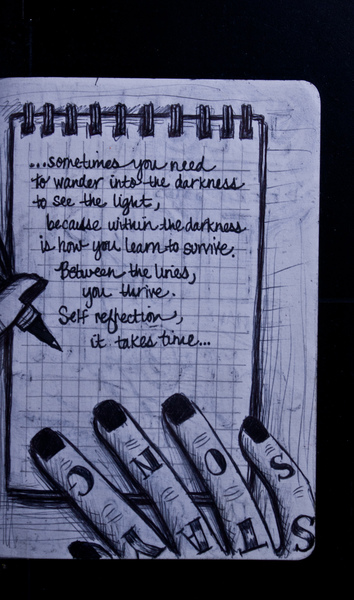 ...sometimes you need
to wander into the darkness
to see the light,
because within the darkness
is how you learn to survive.
Between the lines,
you thrive.
Self reflection,
it takes time...
S O N G
S T A Y